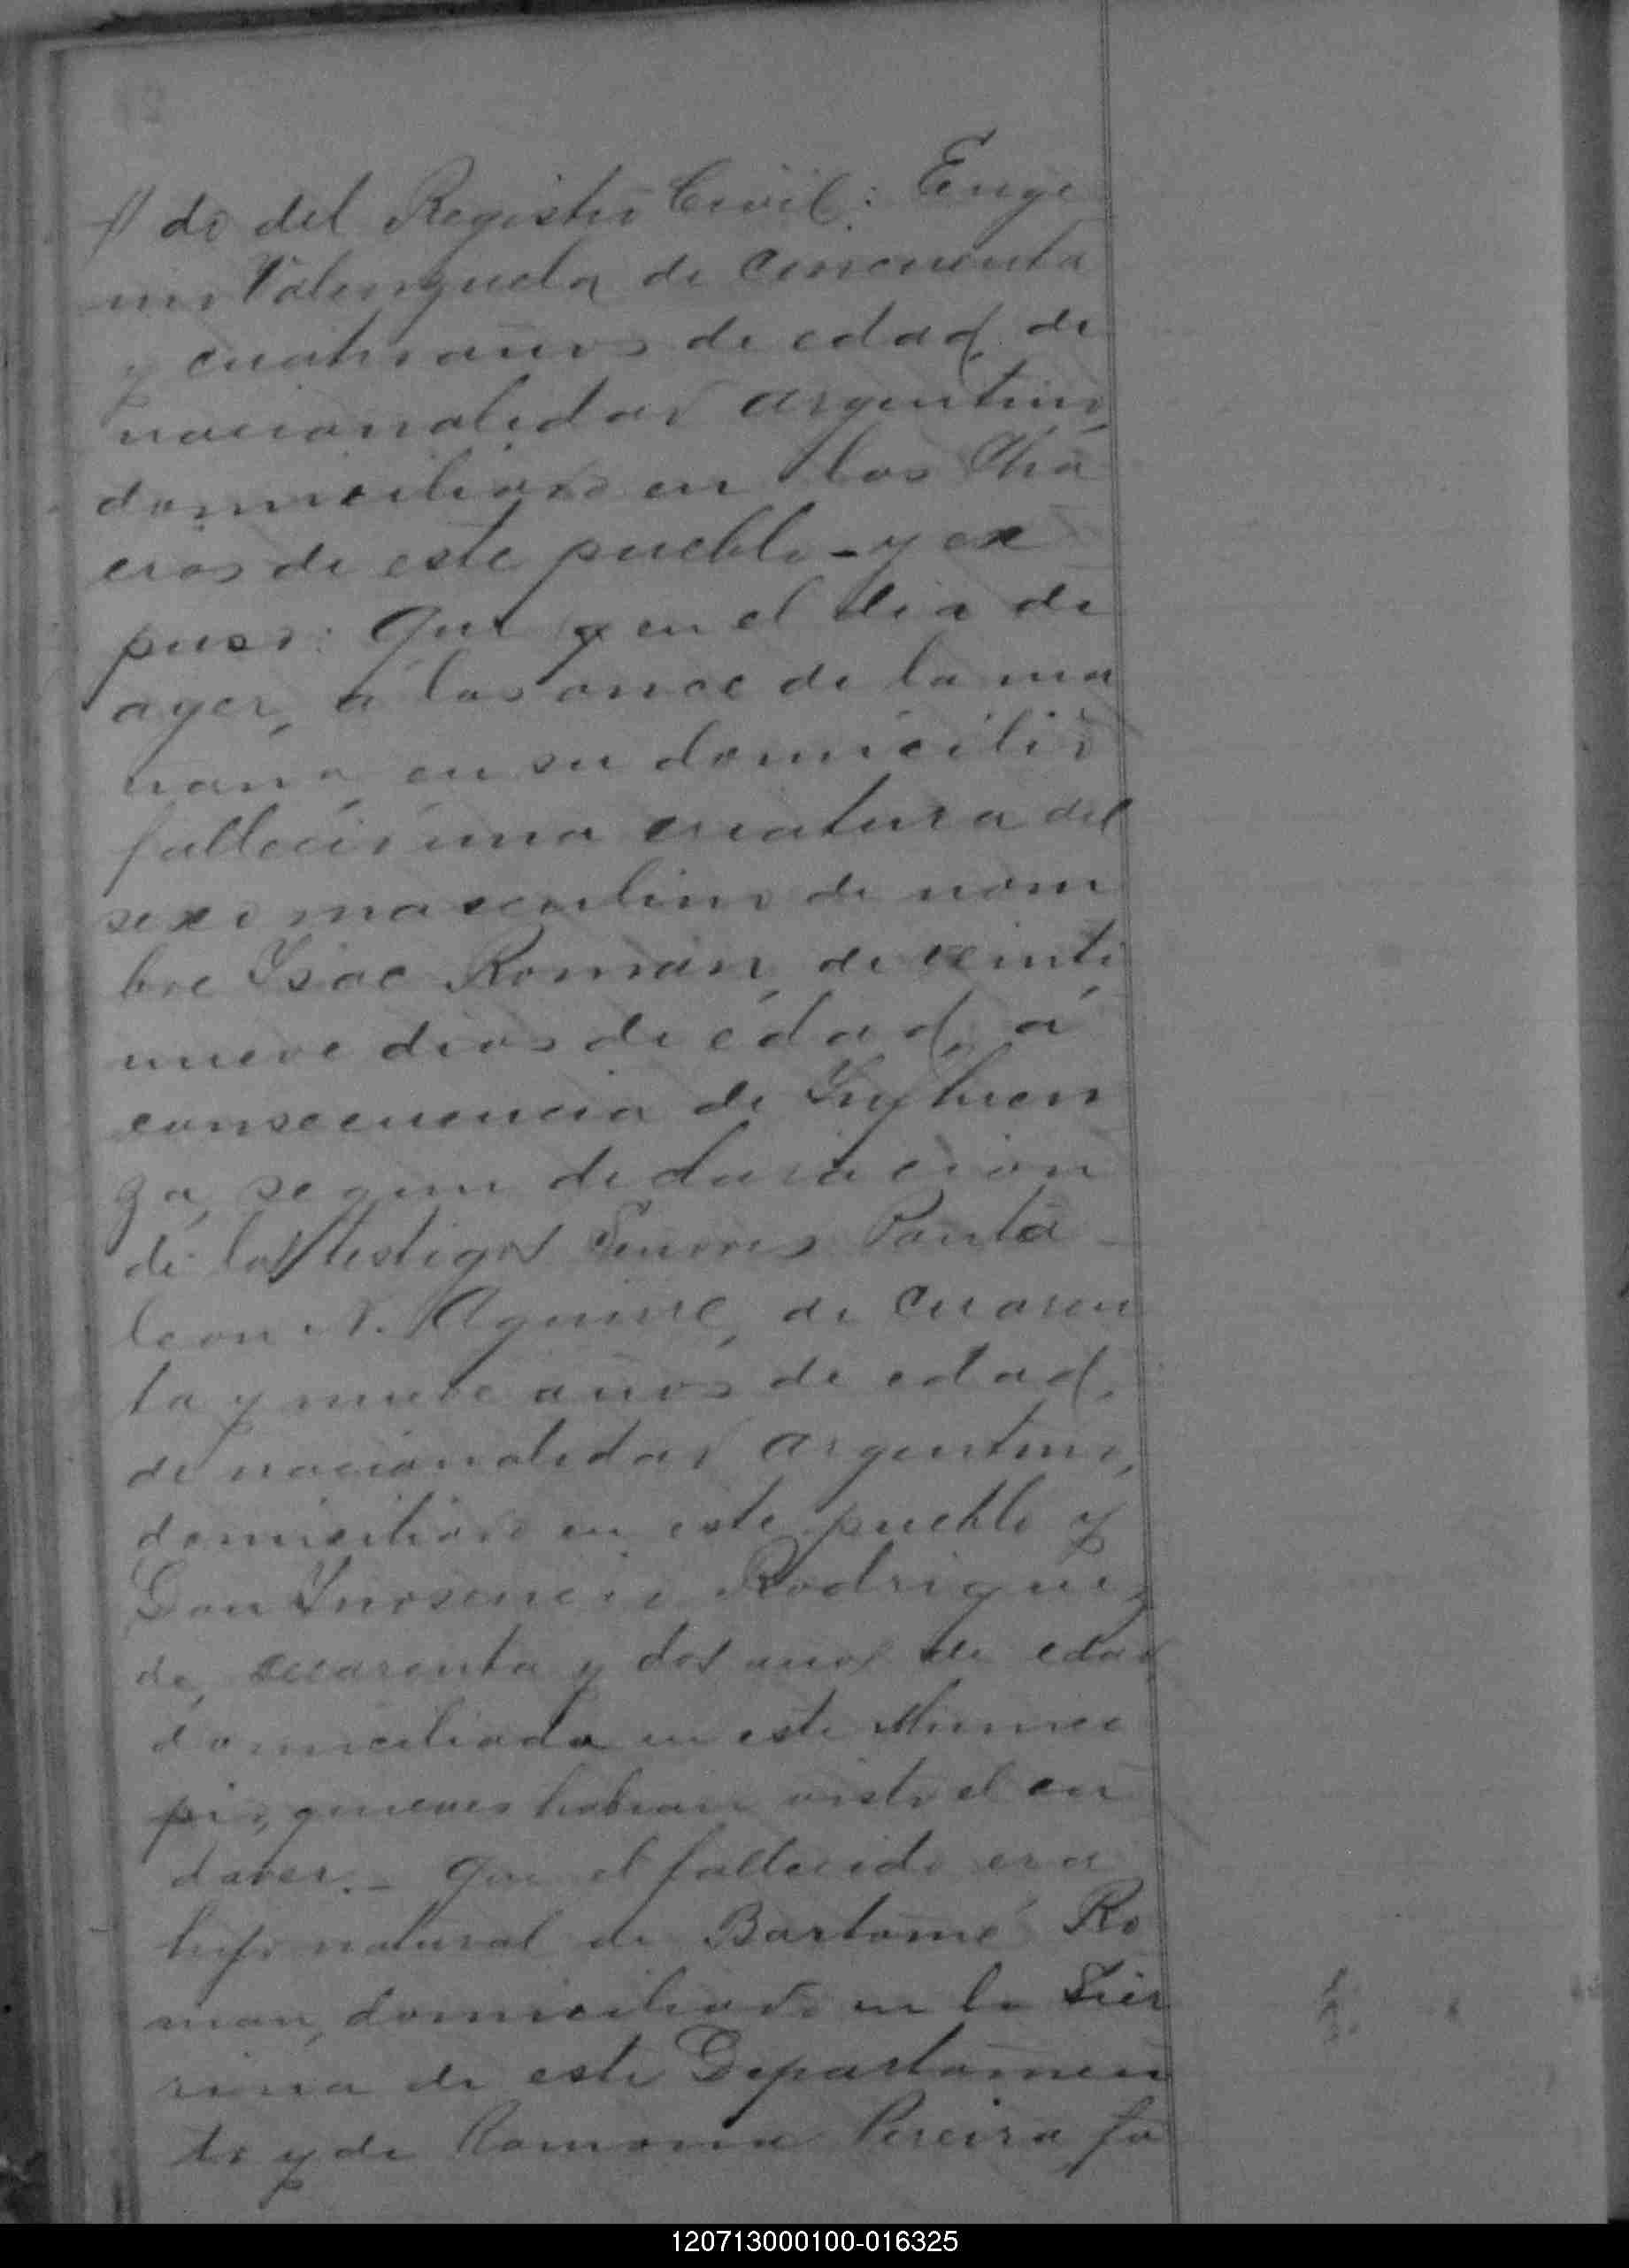 do del Registro Civil: Euge
nio Valenzuela de cincuenta
y cuatro anos de edad, de
nacionalidad argentino,
domiciliado en las Chá
cras de este pueblo - y ex
puso: Que en el dia de
ayer, á las once de la ma
ñana, en su domicilio
falleció una criatura del
sexo masculino de nom
bre Isac Roman, de veinti
nueve dias de edad, á
consecuencia de
segun declaracion
de los testigos Señores Panta
leon N. Aguirre, de cuaren
ta y nueve años de edad,
de nacionalidad argentino,
domiciliado en este pueblo y
Don Inosencio Rodriguez
de, cuarenta y dos años de edad
domiciliado en este Munici
pio, quienes habian visto el ca
daver. - Que el fallecido era
hijo natural de Bartomé Ro
man, domiciliado en la
de este Departamen
to y de Ramona Pereira, fa
120713000100-016325